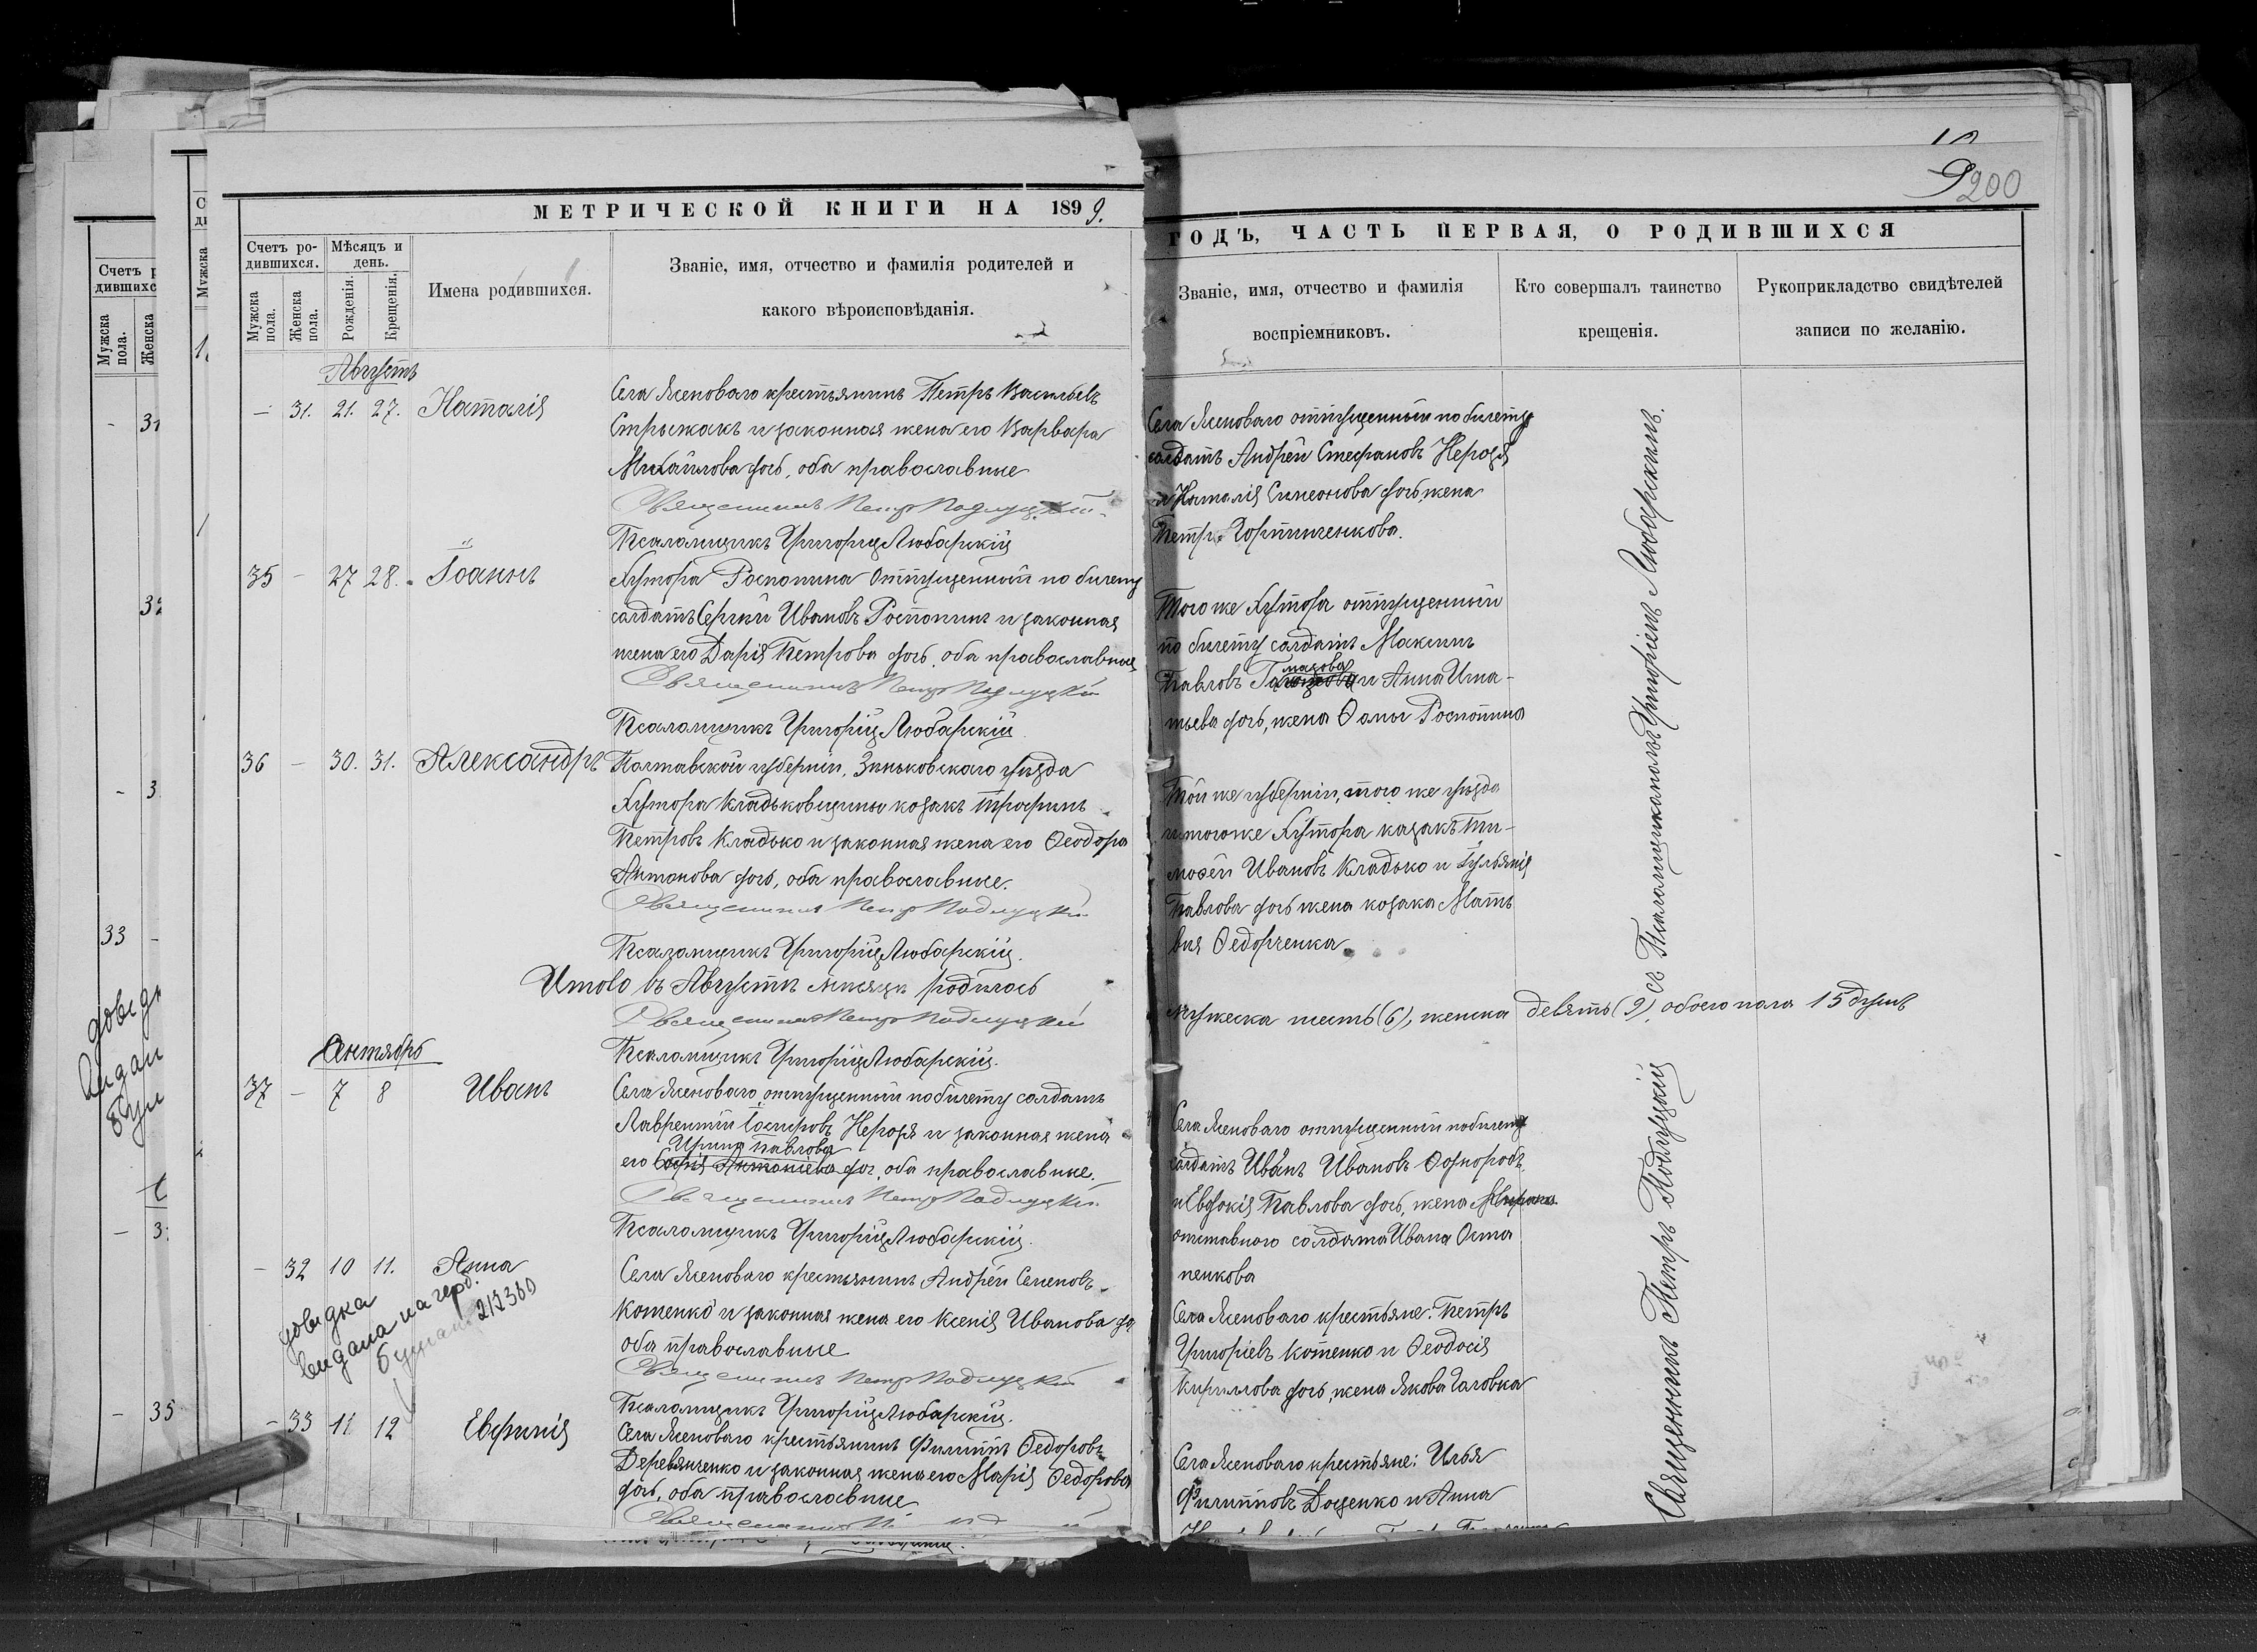 200
МЕТРИЧЕСКОЙ КНИГИ НА 1899.
Счетъ ро-
дившихся.
Мѣсяцъ и
день.
Мужска
пола.
Женска
пола.
Рожденія.
Крещенія.
Имена родившихся.
Званіе, имя, отчество и фамилія родителей и
какого вѣроисповѣданія.
Августъ
— 31. 21. 27. Наталія
Села Ясеноваго крестьянинъ Петръ Васильевъ
Стрижакъ и законная жена его Варвара
Михайлова дочь, оба православные
Священникъ Петръ Подлуцкій
Псаломщикъ Григорій Любарскій
35 — 27 28. Іоаннъ
Хутора Роспопина отпущенный по билету
солдатъ Сергій Ивановъ Роспопинъ и законная
жена его Дарія Петрова дочь, оба православные
Священникъ Петръ Подлуцкій
Псаломщикъ Григорій Любарскій
36 — 30. 31. Александръ
Полтавской губерніи, Зиньковскаго уѣзда
Хутора Кладьковщины козакъ Трофимъ
Петровъ Кладько и законная жена его Ѳеодора
Антонова дочь, оба православные.
Священникъ Петръ Подлуцкій
Псаломщикъ Григорій Любарскій.
Итого въ Августѣ мѣсяцѣ родилось
Священникъ Петръ Подлуцкій
Псаломщикъ Григорій Любарскій.
Сентябрь
37 — 7 8 Иванъ
Села Ясеноваго отпущенный по билету солдатъ
Лаврентій Іосифовъ Нерода и законная жена
Ирина Павлова
его Софія Антоніева доч, оба православные.
Священникъ Петръ Подлуцкій
Псаломщикъ Григорій Любарскій.
— 32 10 11. Анна
довідка
видана на герб.
бумазі 212360
Села Ясеноваго крестьянинъ Андрей Семеновъ
Котенко и законная жена его Ксенія Иванова до
оба православные
Священникъ Петръ Подлуцкій
Псаломщикъ Григорій Любарскій.
— 33 11 12 Евфимія
Села Ясеноваго крестьянинъ Филиппъ Ѳедоровъ
Деревянченко и законная жена его Марія Ѳедорова
дочь, оба православные
Священникъ
ГОДЪ, ЧАСТЬ ПЕРВАЯ, О РОДИВШИХСЯ
Званіе, имя, отчество и фамилія
воспріемниковъ.
Кто совершалъ таинство
крещенія.
Рукоприкладство свидѣтелей
записи по желанію.
Села Ясеноваго отпущенный по билету
солдатъ Андрей Стефановъ Нерода
и Наталія Симеонова дочь, жена
Петра Гортиченкова.
Того же Хутора отпущенный
по билету солдатъ Максимъ
Павловъ и Анна Игна-
тьева дочь, жена Ѳомы Роспопина
Той же губерніи, того же уѣзда
и того же Хутора казакъ Ти-
моѳей Ивановъ Кладько и Іуліанія
Павлова дочь жена козака Матѳ
вія Ѳедорченка
мужеска шесть (6), женска девять (9), обоего пола 15 душъ
Села Ясеноваго отпущенный по билету
солдатъ Иванъ Ивановъ
и Евдокія Павлова дочь, жена
отставного солдата Ивана Оста
пенкова
Села Ясеноваго крестьяне: Петръ
Григоріевъ Котенко и Ѳеодосія
Кириллова дочь, жена Якова Головка
Села Ясеноваго крестьяне: Илья
Филипповъ Доценко и Анна
Священникъ Петръ Подлуцкій
съ Псаломщикомъ Григоріемъ Любарскимъ.
Счетъ р
дившихс
Мужска
пола.
Женска
31
33
35
довідк
видан
бум
Мужска